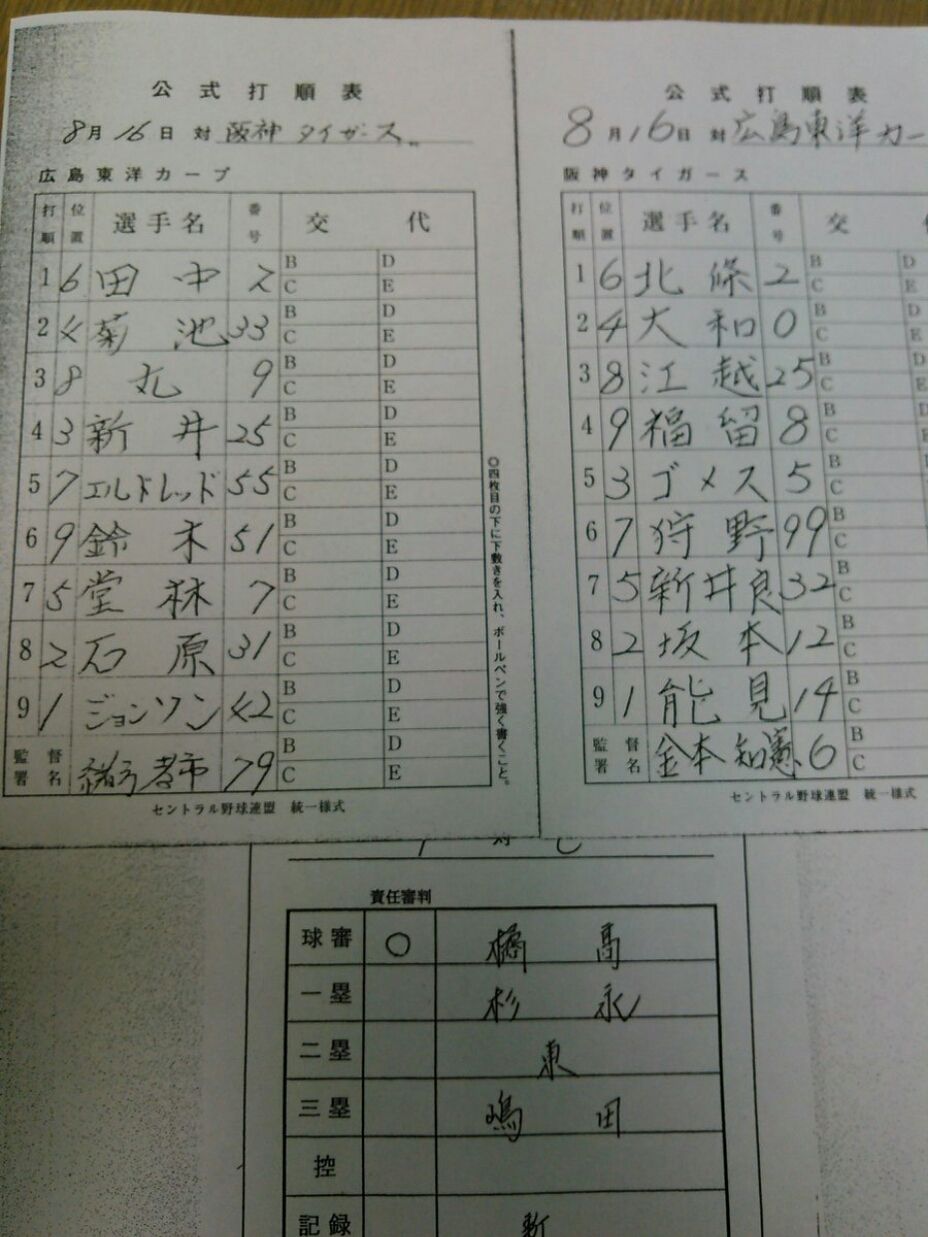 公式打順表
8月16日 対 阪神タイガース
広島東洋カープ
打順 位置 選手名 番号 交代
1 6 田中 2 B C D E
2 4 菊池 33 B C D E
3 8 丸 9 B C D E
4 3 新井 25 B C D E
5 7 エルドレッド 55 B C D E
6 9 鈴木 51 B C D E
7 5 堂林 7 B C D E
8 2 石原 31 B C D E
9 1 ジョンソン 42 B C D E
監督署名 緒方孝市 79 B C D E
セントラル野球連盟 統一様式
〇四枚目の下に下敷きを入れ、ボールペンで強く書くこと。
公式打順表
8月16日 対 広島東洋カー
阪神タイガース
打順 位置 選手名 番号 交
1 6 北條 2 B C D E
2 4 大和 0 B C D E
3 8 江越 25 B C D E
4 9 福留 8 B C D
5 3 ゴメス 5 B C
6 7 狩野 99 B C
7 5 新井良 32 B C
8 2 坂本 12 B C
9 1 能見 14 B C
監督署名 金本知憲 6 B C
セントラル野球連盟 統一様式
対
責任審判
球審 〇 橘高
一塁 杉永
二塁 東
三塁 嶋田
控
記録